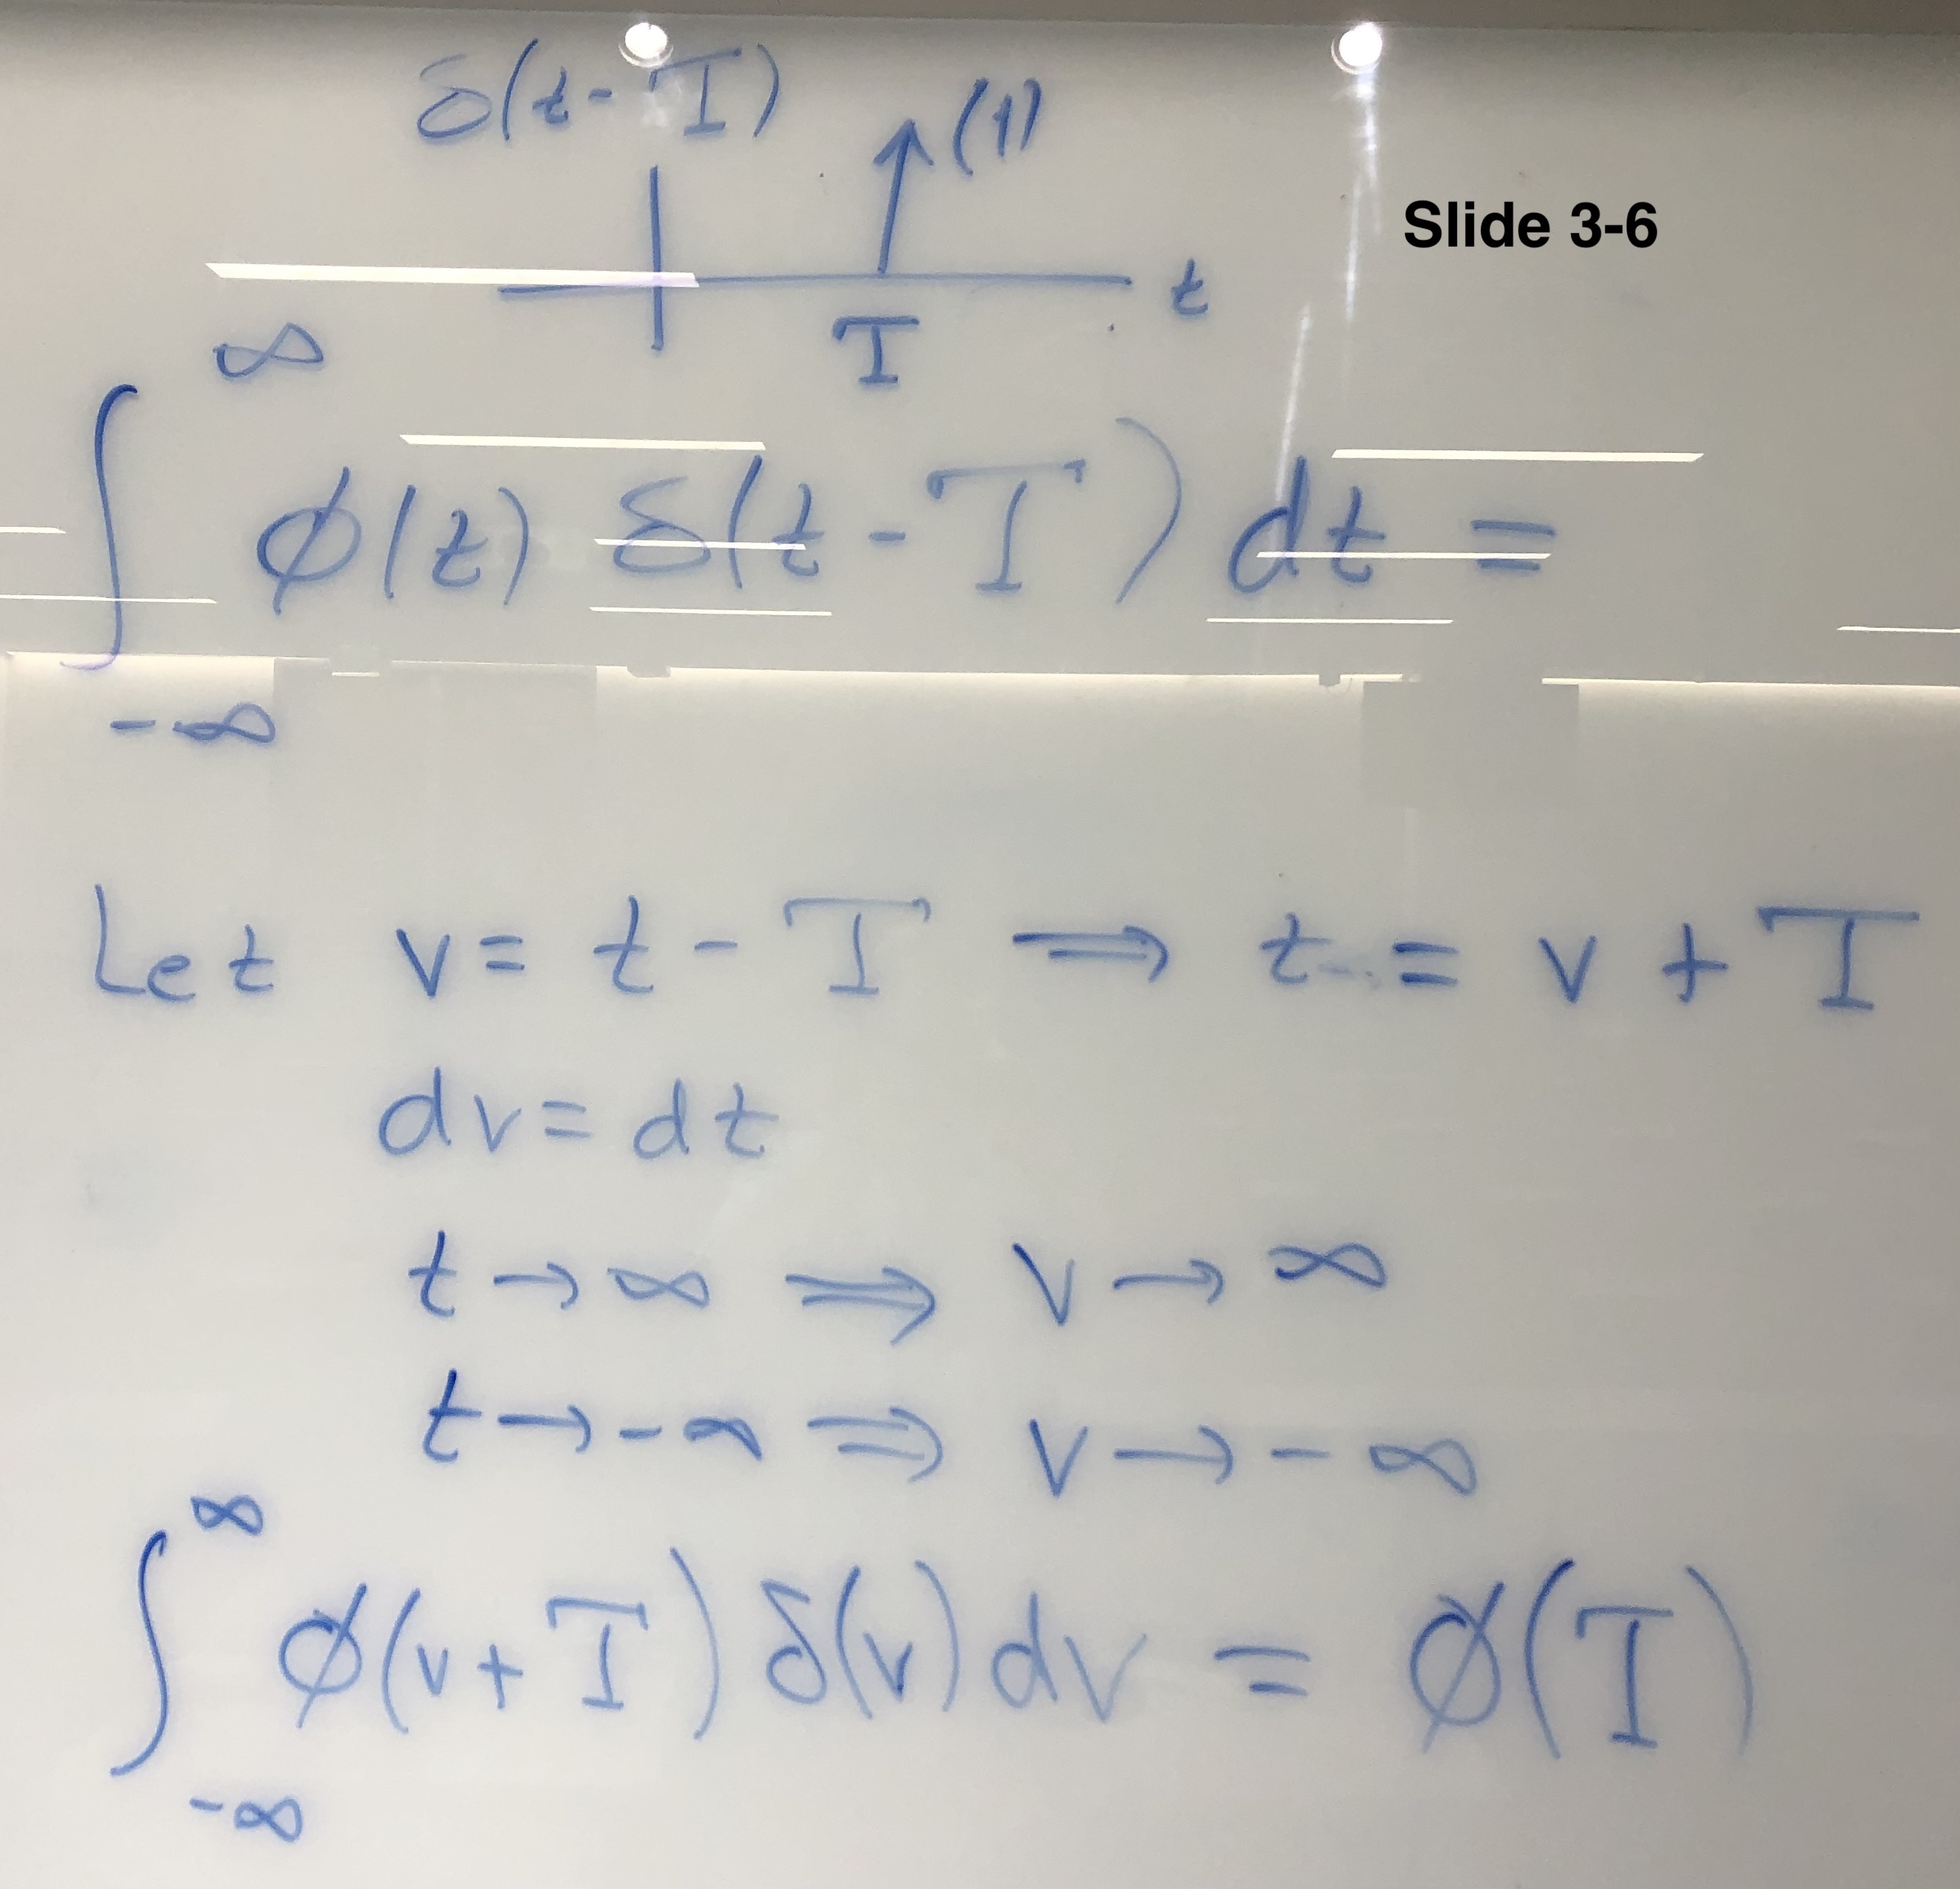 δ(t-T)
(1)
Slide 3-6
t
T
∫_{-∞}^{∞} ϕ(t) δ(t-T) dt =
Let v = t - T ⟹ t = v + T
dv = dt
t → ∞ ⟹ v → ∞
t → -∞ ⟹ v → -∞
∫_{-∞}^{∞} ϕ(v+T) δ(v) dv = ϕ(T)